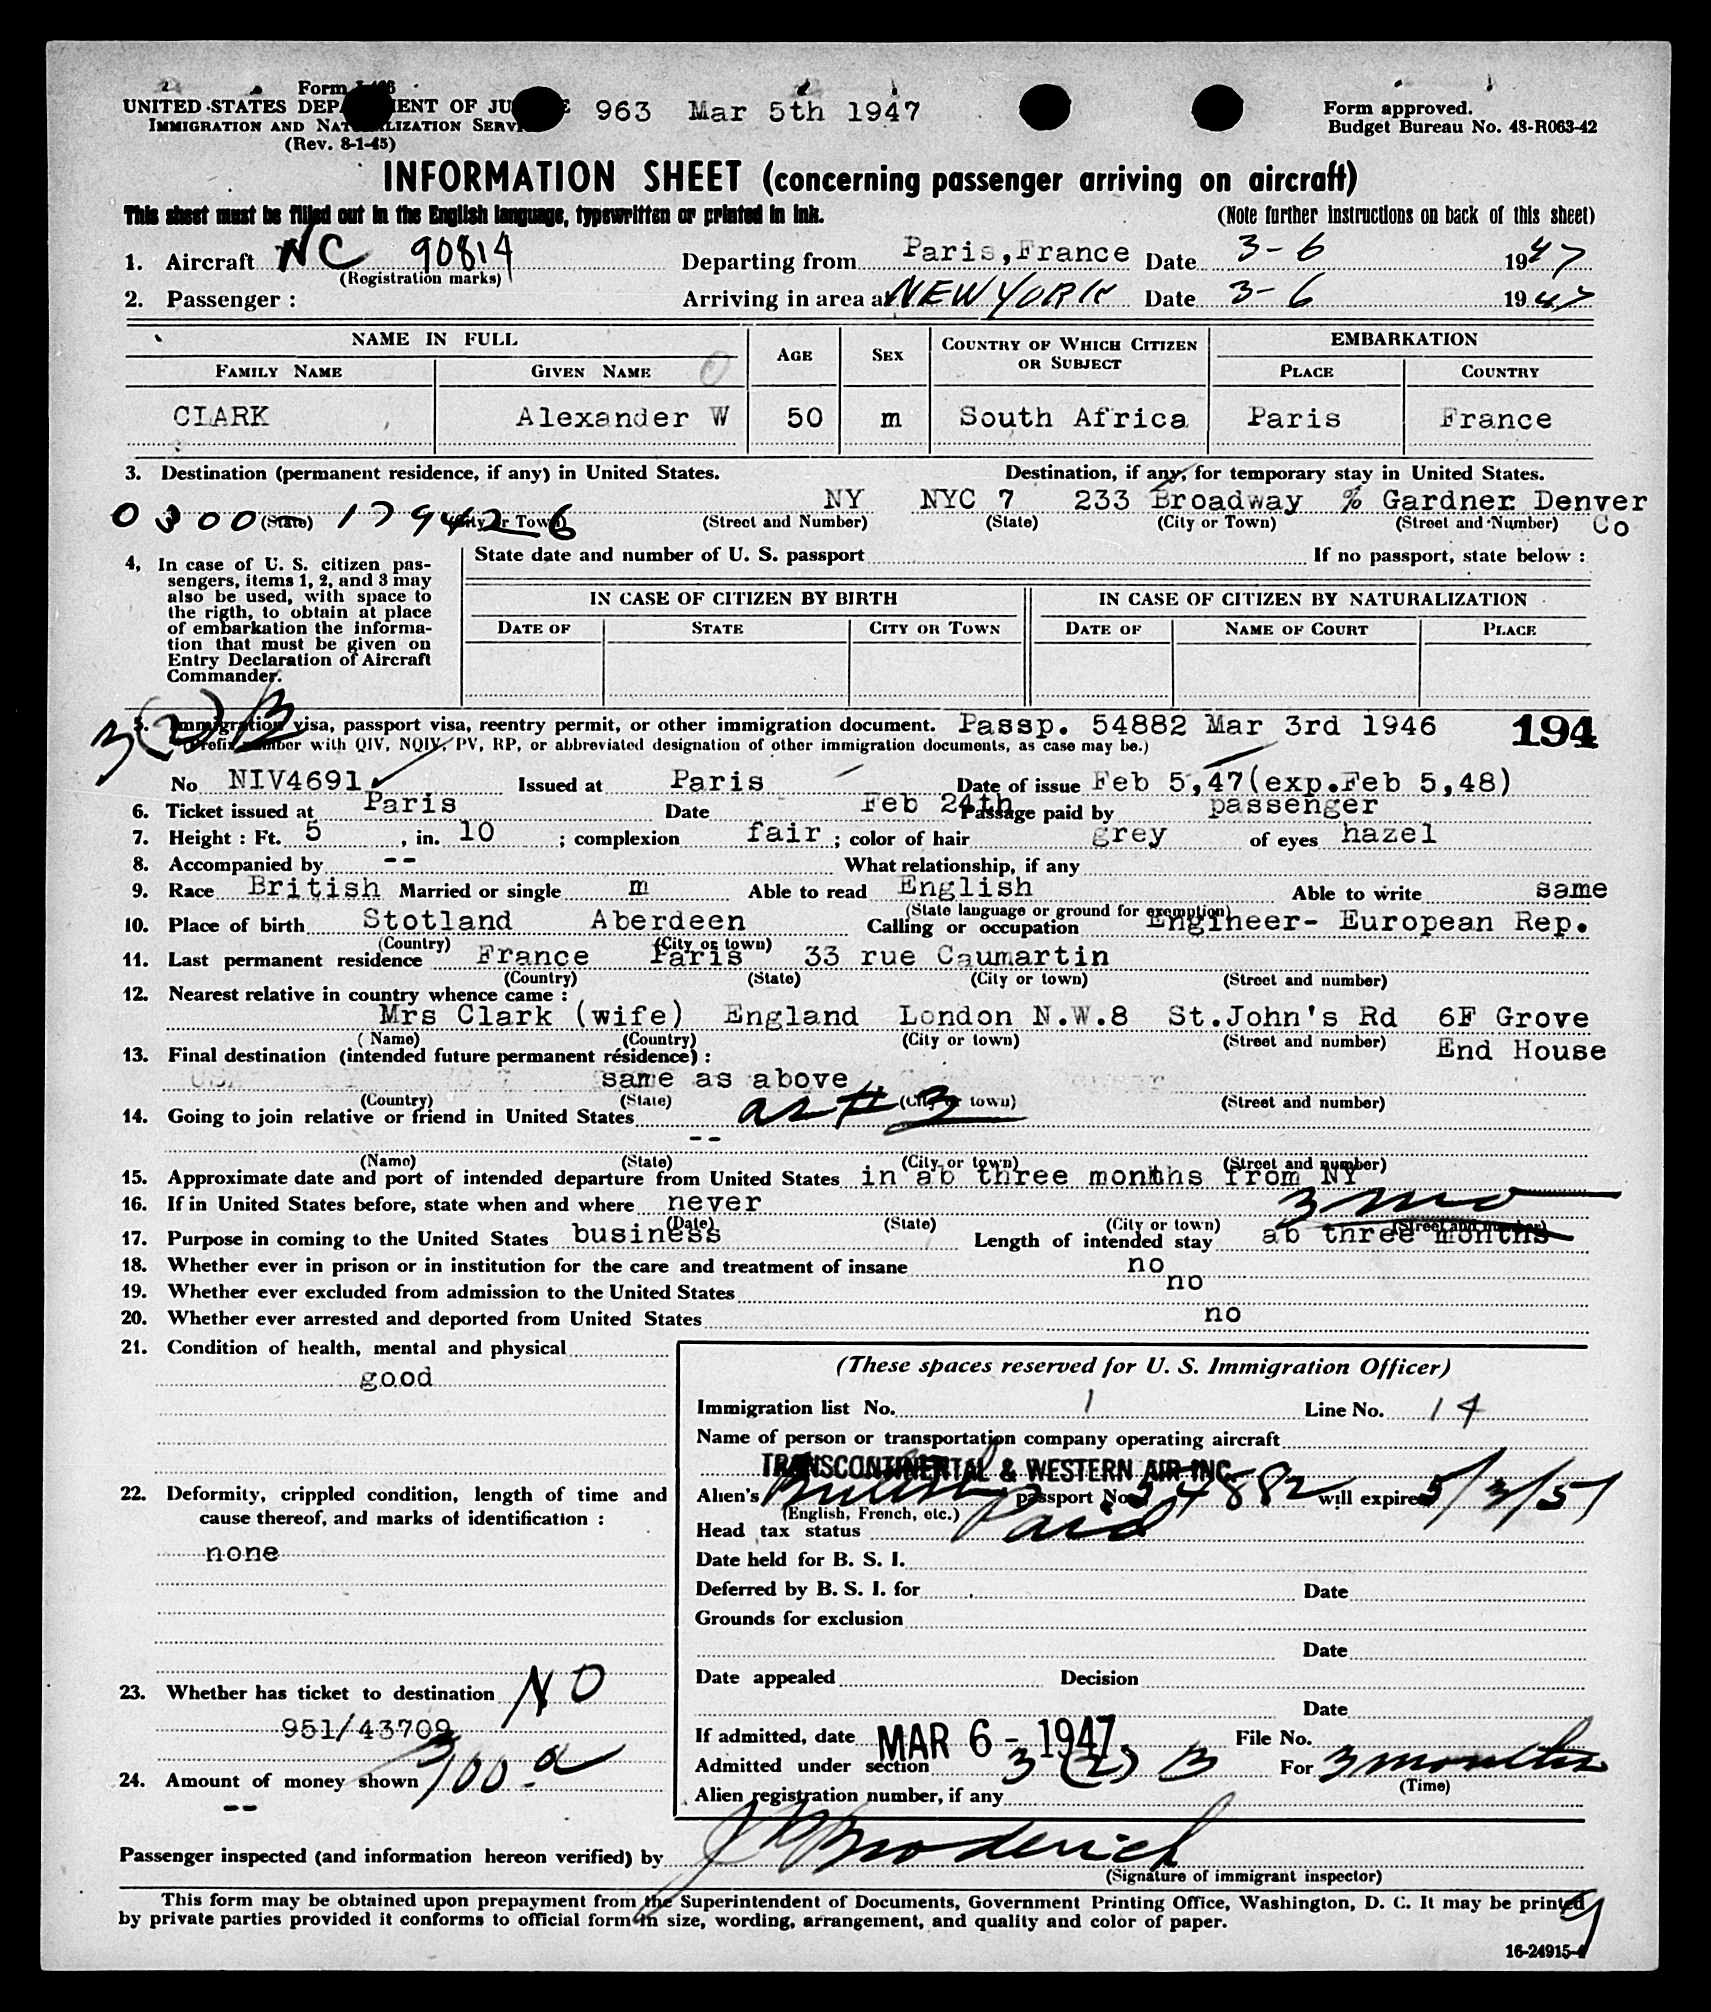 Form I-466
UNITED STATES DEPARTMENT OF JUSTICE 963 Mar 5th 1947 Form approved.
IMMIGRATION AND NATURALIZATION SERVICE Budget Bureau No. 43-R063-42
(Rev. 8-1-45)
INFORMATION SHEET (concerning passenger arriving on aircraft)
This sheet must be filled out in the English language, typewritten or printed in ink. (Note further instructions on back of this sheet)
1. Aircraft NC 90814 Departing from Paris,France Date 3-6 1947
(Registration marks)
2. Passenger : Arriving in area at NEW YORK Date 3-6 1947
NAME IN FULL AGE SEX COUNTRY OF WHICH CITIZEN OR SUBJECT EMBARKATION
FAMILY NAME GIVEN NAME PLACE COUNTRY
CLARK Alexander W 50 m South Africa Paris France
3. Destination (permanent residence, if any) in United States. Destination, if any, for temporary stay in United States.
NY NYC 7 233 Broadway % Gardner Denver
0300 179426 (State) (City or Town) (Street and Number) (State) (City or Town) (Street and Number) Co
4, In case of U. S. citizen pas- State date and number of U. S. passport If no passport, state below :
sengers, items 1, 2, and 3 may
also be used, with space to IN CASE OF CITIZEN BY BIRTH IN CASE OF CITIZEN BY NATURALIZATION
the rigth, to obtain at place
of embarkation the informa- DATE OF STATE CITY OR TOWN DATE OF NAME OF COURT PLACE
tion that must be given on
Entry Declaration of Aircraft
Commander.
3(2)B
5. Immigration visa, passport visa, reentry permit, or other immigration document. Passp. 54882 Mar 3rd 1946 194
(Prefix number with QIV, NQIV, PV, RP, or abbreviated designation of other immigration documents, as case may be.)
No NIV4691 Issued at Paris Date of issue Feb 5,47(exp.Feb 5,48)
6. Ticket issued at Paris Date Feb 24th Passage paid by passenger
7. Height : Ft. 5 , in. 10 ; complexion fair ; color of hair grey of eyes hazel
8. Accompanied by -- What relationship, if any
9. Race British Married or single m Able to read English Able to write same
(State language or ground for exemption)
10. Place of birth Stotland Aberdeen Calling or occupation Engineer- European Rep.
(Country) (City or town)
11. Last permanent residence France Paris 33 rue Caumartin
(Country) (State) (City or town) (Street and number)
12. Nearest relative in country whence came :
Mrs Clark (wife) England London N.W.8 St.John's Rd 6F Grove
(Name) (Country) (City or town) (Street and number) End House
13. Final destination (intended future permanent résidence) :
same as above
(Country) (State) (City or town) (Street and number)
14. Going to join relative or friend in United States as # 3
--
(Name) (State) (City or town) (Street and number)
15. Approximate date and port of intended departure from United States in ab three months from NY
16. If in United States before, state when and where never 3 mo
(Date) (State) (City or town) (Street and number)
17. Purpose in coming to the United States business Length of intended stay ab three months
18. Whether ever in prison or in institution for the care and treatment of insane no
19. Whether ever excluded from admission to the United States no
20. Whether ever arrested and deported from United States no
21. Condition of health, mental and physical
good
22. Deformity, crippled condition, length of time and
cause thereof, and marks of identification :
none
23. Whether has ticket to destination NO
951/43709
24. Amount of money shown 700
--
(These spaces reserved for U. S. Immigration Officer)
Immigration list No. 1 Line No. 14
Name of person or transportation company operating aircraft
TRANSCONTINENTAL & WESTERN AIR INC.
Alien's British passport No. 54882 will expire 5/3/51
(English, French, etc.)
Head tax status Paid
Date held for B. S. I.
Deferred by B. S. I. for Date
Grounds for exclusion
Date
Date appealed Decision
Date
If admitted, date MAR 6 - 1947 File No.
Admitted under section 3 (2) B For 3 months
(Time)
Alien registration number, if any
Passenger inspected (and information hereon verified) by Broderick
(Signature of immigrant inspector)
This form may be obtained upon prepayment from the Superintendent of Documents, Government Printing Office, Washington, D. C. It may be printed
by private parties provided it conforms to official form in size, wording, arrangement, and quality and color of paper.
16-24915-1